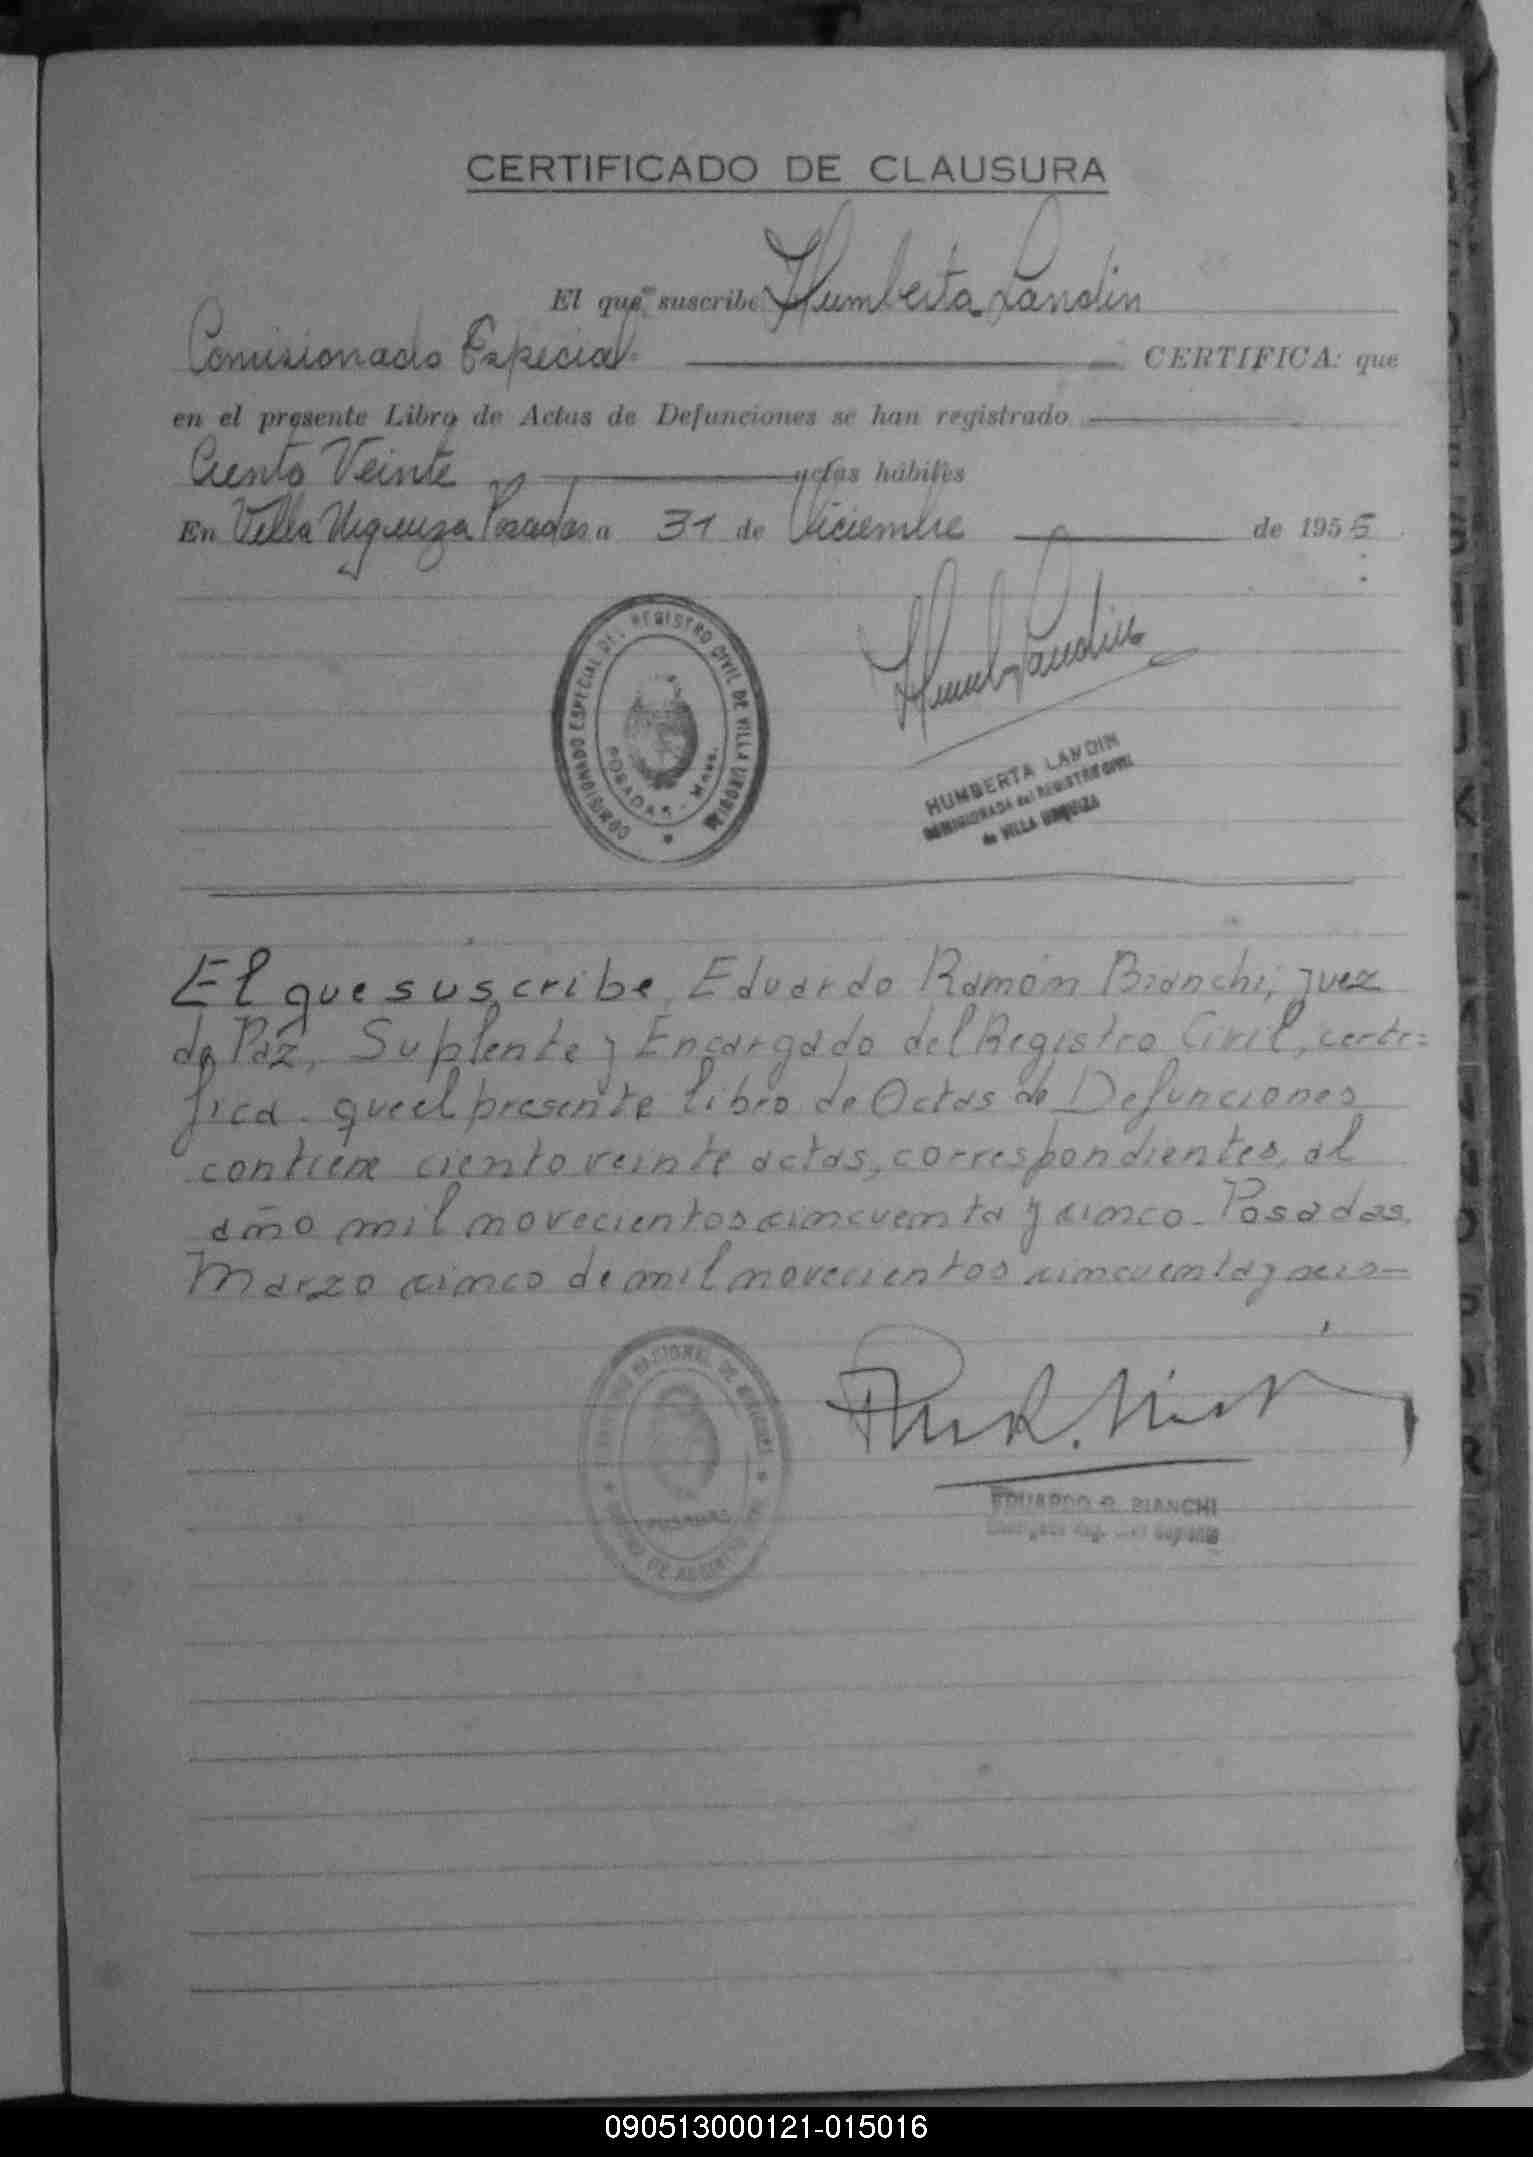 CERTIFICADO DE CLAUSURA
El que suscribe Humberta Landin
Comisionado Especial CERTIFICA: que
en el presente Libro de Actas de Defunciones se han registrado
Ciento Veinte actas hábiles
En Villa Urquiza Posadas a 31 de Diciembre de 1955
COMISIONADO ESPECIAL DEL REGISTRO CIVIL DE VILLA URQUIZA
POSADAS - Mnes.
Humb Landin
HUMBERTA LANDIN
COMISIONADA del REGISTRO CIVIL
de VILLA URQUIZA
El que suscribe, Eduardo Ramón Bianchi, juez
de Paz, Suplente y Encargado del Registro Civil, certi=
fica que el presente libro de Actas de Defunciones
contiene ciento veinte actas, correspondientes, al
año mil novecientos cincuenta y cinco. Posadas,
Marzo cinco de mil novecientos cincuenta y seis—
NACIONAL DE
POSADAS
EDUARDO R. BIANCHI
Encargado Reg. Suplente
090513000121-015016